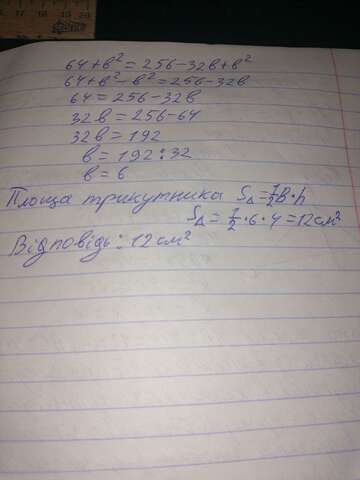 64+в²=256-32в+в²
64+в²-в²=256-32в
64=256-32в
32в=256-64
32в=192
в=192:32
в=6
Площа трикутника S△=½в·h
S△=½·6·4=12см²
Відповідь: 12см²